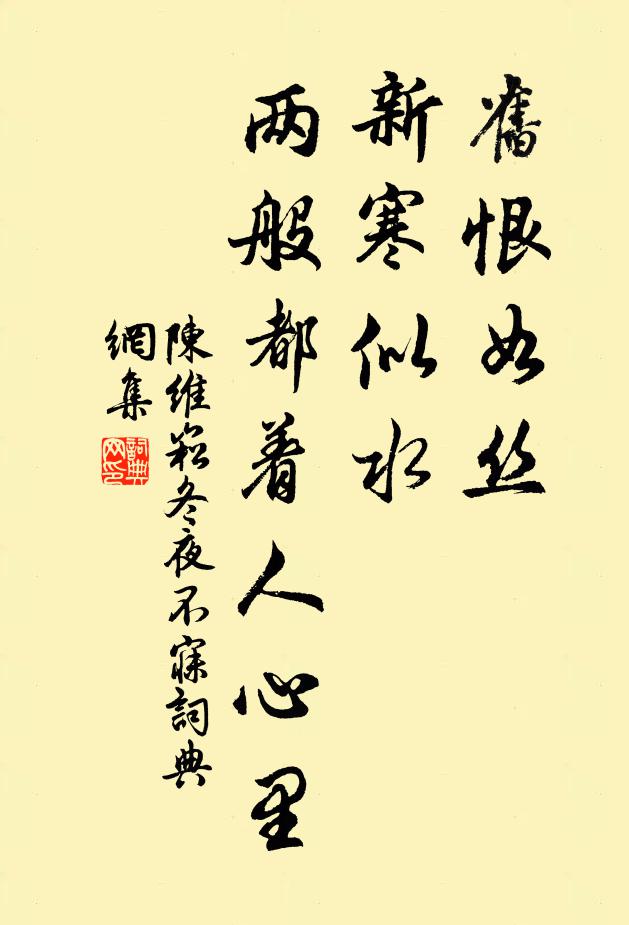 舊恨如丝
新寒似水
两般都着人心里
陳維崧冬夜不寐詞典
網集
詞典
网印